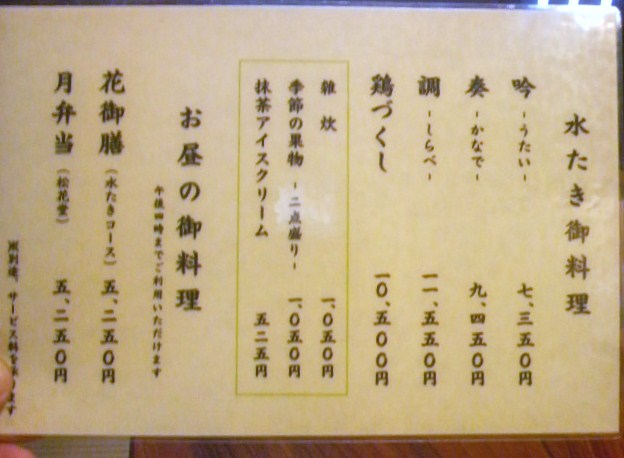 水たき御料理
吟 -うたい- 七、三五〇円
奏 -かなで- 九、四五〇円
調 -しらべ- 一一、五五〇円
鶏づくし 一〇、五〇〇円
雑炊 一、〇五〇円
季節の果物 -二点盛り- 一、〇五〇円
抹茶アイスクリーム 五二五円
お昼の御料理
午後四時までご利用いただけます
花御膳 (水たきコース) 五、二五〇円
月弁当 (松花堂) 五、二五〇円
サービス料を